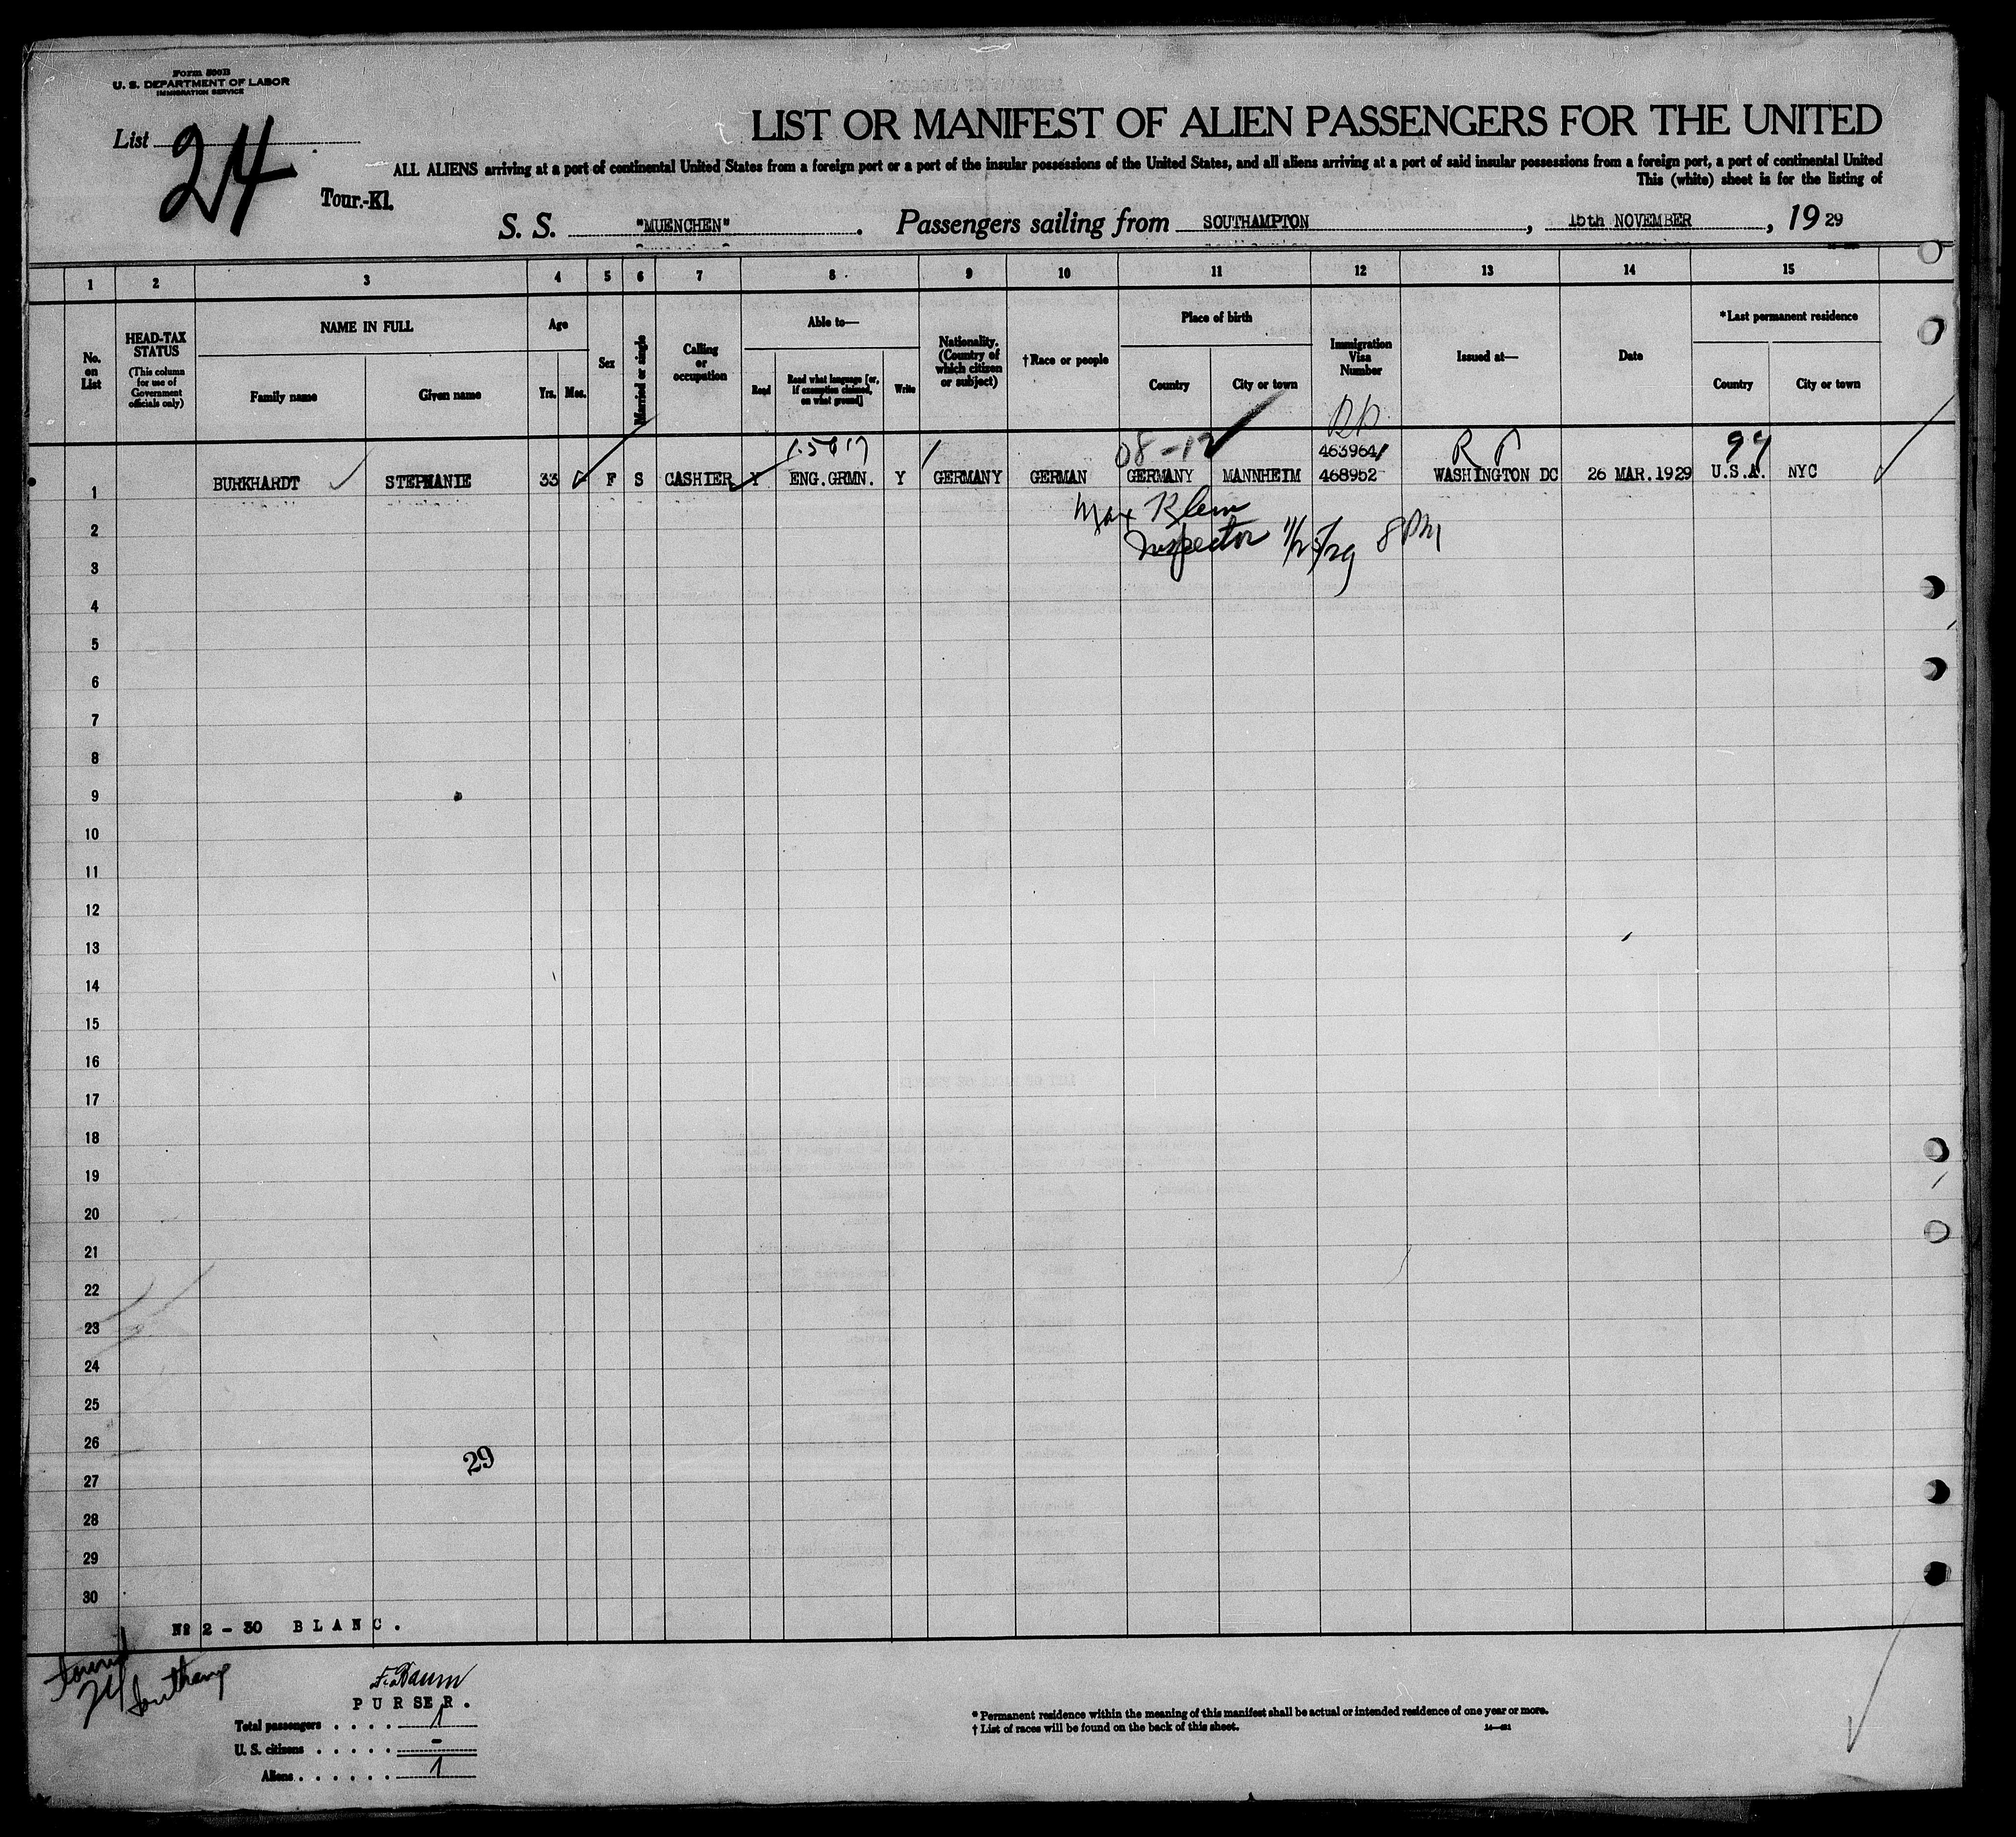 Form 500B
U. S. DEPARTMENT OF LABOR
IMMIGRATION SERVICE
List 24
Tour.-Kl.
LIST OR MANIFEST OF ALIEN PASSENGERS FOR THE UNITED
ALL ALIENS arriving at a port of continental United States from a foreign port or a port of the insular possessions of the United States, and all aliens arriving at a port of said insular possessions from a foreign port, a port of continental United
This (white) sheet is for the listing of
S. S. "MUENCHEN". Passengers sailing from SOUTHAMPTON, 15th NOVEMBER, 1929
1 2 3 4 5 6 7 8 9 10 11 12 13 14 15
No. on List
HEAD-TAX STATUS (This column for use of Government officials only)
NAME IN FULL
Family name
Given name
Age
Yrs. Mos.
Sex
Married or single
Calling or occupation
Able to—
Read
Read what language [or, if exemption claimed, on what ground]
Write
Nationality. (Country of which citizen or subject)
†Race or people
Place of birth
Country
City or town
Immigration Visa Number
Issued at—
Date
*Last permanent residence
Country
City or town
08-12
463964
RP
99
1 BURKHARDT STEPHANIE 33 F S CASHIER Y ENG.GRMN. Y GERMANY GERMAN GERMANY MANNHEIM 468952 WASHINGTON DC 26 MAR.1929 U.S.A. NYC
Max Klein
Inspector 11/25/29 8PM
2
3
4
5
6
7
8
9
10
11
12
13
14
15
16
17
18
19
20
21
22
23
24
25
26
29
27
28
29
30
№ 2 - 30 BLANC.
24 Southamp
F. Baum
PURSER.
Total passengers . . . . 1
U. S. citizens . . . . . -
Aliens . . . . . . 1
* Permanent residence within the meaning of this manifest shall be actual or intended residence of one year or more.
† List of races will be found on the back of this sheet.